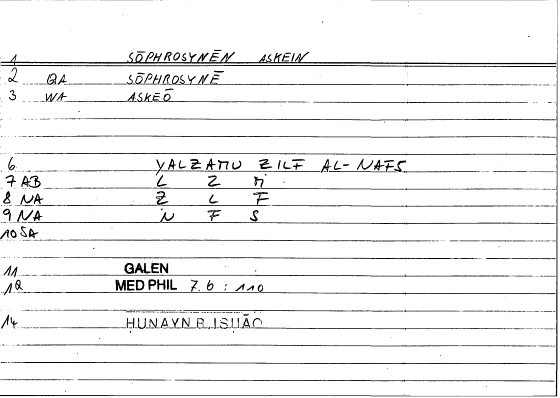 1 SŌPHROSYNĒN ASKEIN
2 QA SŌPHROSYNĒ
3 WA ASKEŌ
6 YALZAMU ẒILF AL-NAFS
7 AB L Z M
8 NA Ẓ L F
9 NA N F S
10 SA
11 GALEN
12 MED PHIL 7.6 : 110
14 ḤUNAYN B. ISḤĀQ